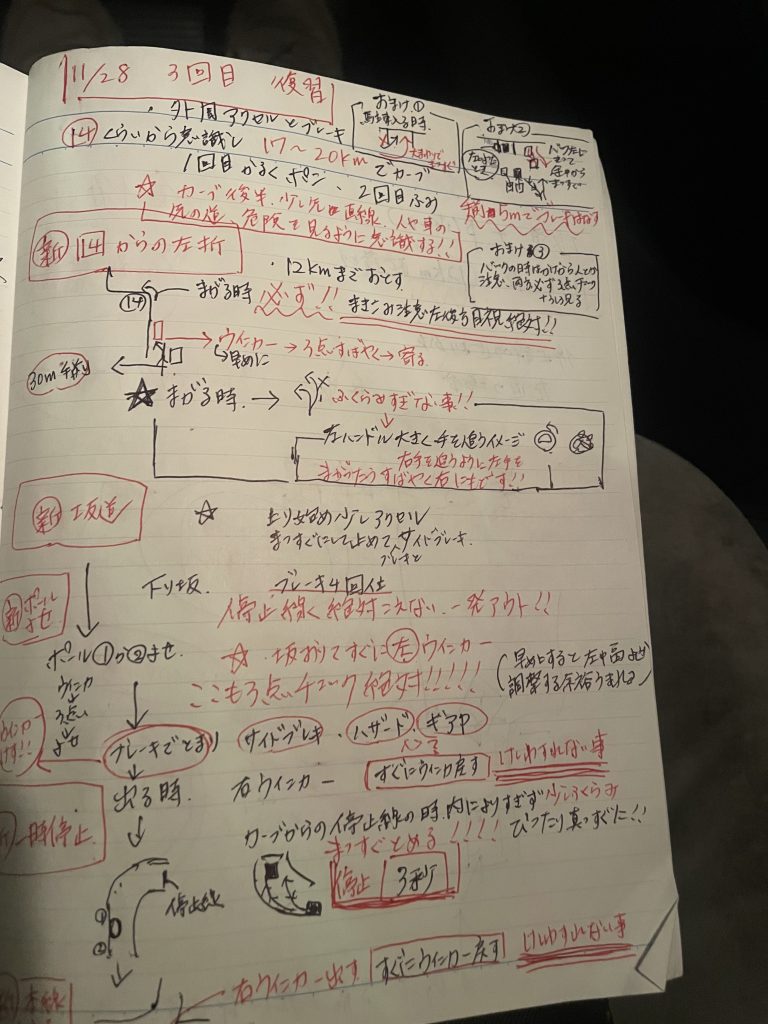 11/28 3回目 復習
・外周アクセルとブレーキ
おまけ①
おまけ②
⑭くらいから意識し 17〜20kmでカーブ
1回目かるくポン・2回目ふみ
☆ カーブ後半、少し先直線、人や車の
先の道、危険を見るように意識する!!
手前5mでブレーキはなす
新 14からの左折
・12kmまでおとす
おまけ③
⑭ まがる時 必ず!! まきこみ注意左後方目視絶対!!
→ウィンカー→3点すばやく→寄る
早めに
30m手前
★ まがる時 → ふくらみすぎない事!!
左ハンドル大きく手を追うイメージ
右手を追うように左手を
まがったらすばやく右にもどす!!
新 坂道 ☆ 上り始め少しアクセル
まっすぐにして止めてサイドブレーキ
ブレーキと
下り坂. ブレーキ4回位
新 ポールよせ
停止線絶対こえない.一発アウト!!
ポール①か②よせ ☆ 坂おりてすぐに左ウィンカー
ウィンカ→3点→よせ
ここも3点チェック絶対!!!!!
早めにすると左や
調整する余裕うまれる
ブレーキでとまり サイドブレーキ・ハザード・ギアP
出る時 右ウィンカー すぐにウィンカ戻す けしわすれない事
一時停止
カーブからの停止線の時.内によりすぎず少しふくらみ
まっすぐとめる!!!! ぴったり真っすぐに!!
停止線
停止 3秒
右ウィンカー出す すぐにウィンカー戻す けしわすれない事